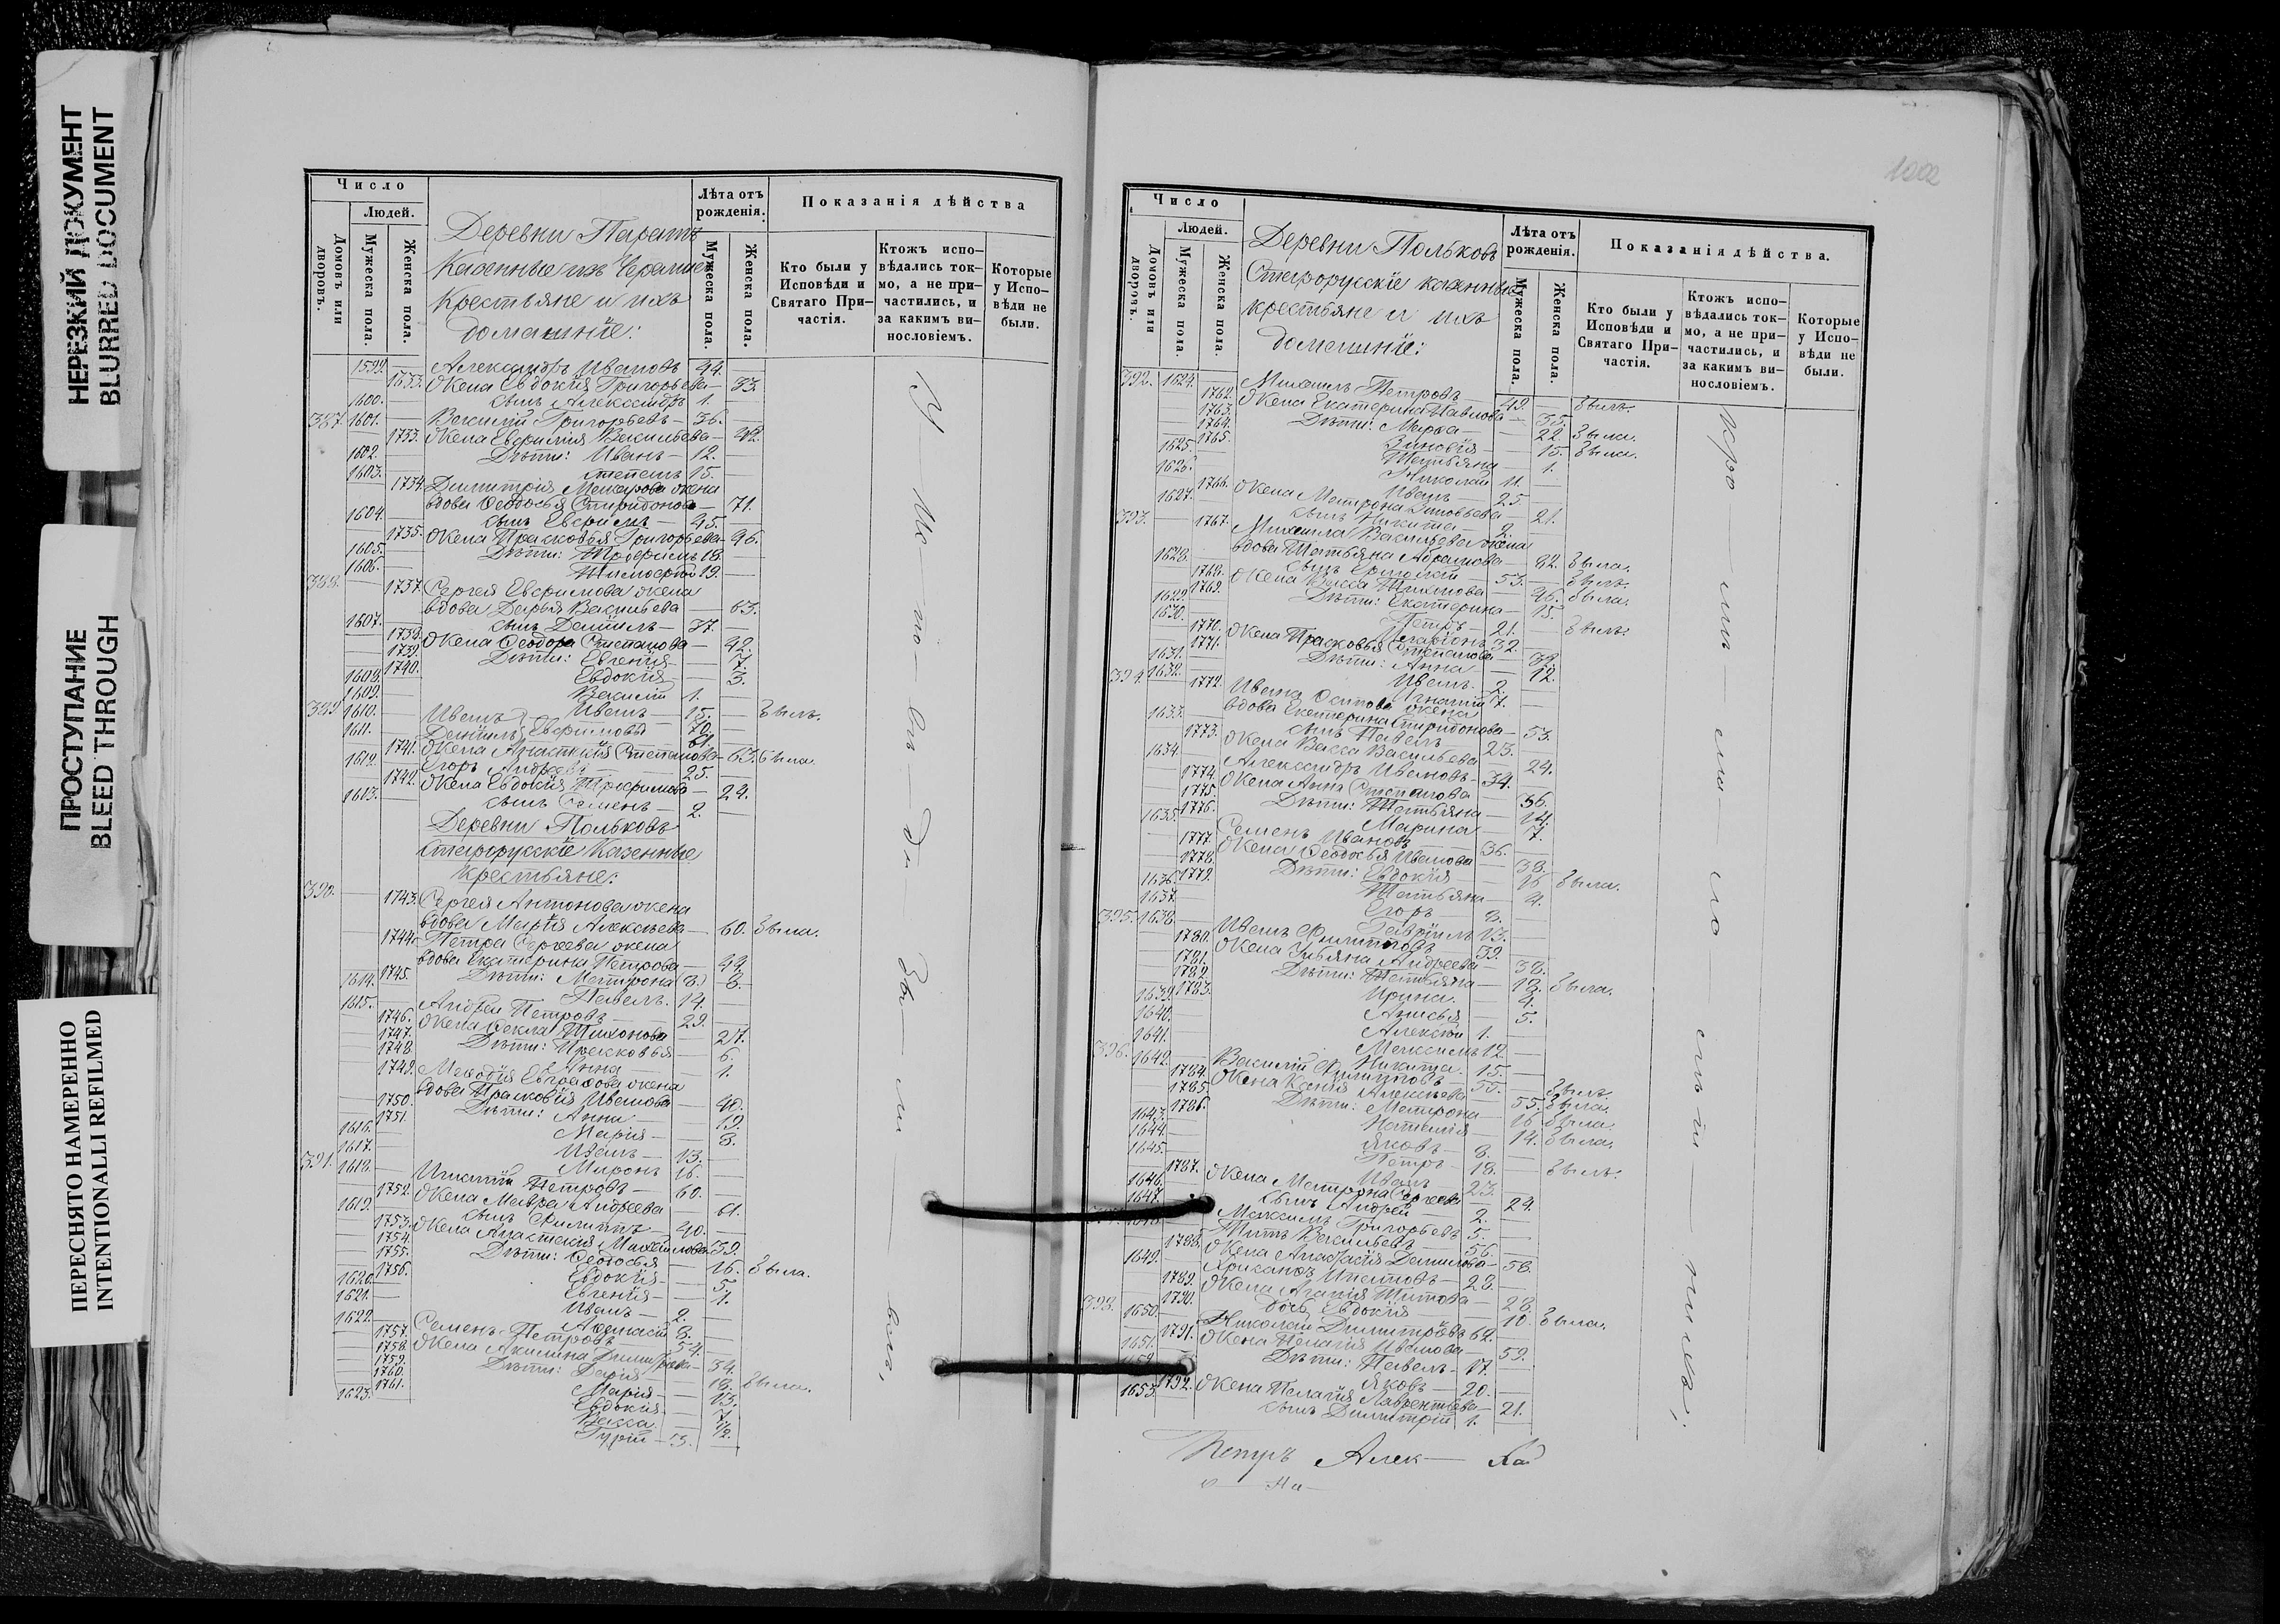 НЕРЕЗКИЙ ДОКУМЕНТ
BLURRED DOCUMENT
ПРОСТУПАНИЕ
BLEED THROUGH
ПЕРЕСНЯТО НАМЕРЕННО
INTENTIONALLI REFILMED
Число
Людей.
Домовъ или дворовъ.
Мужеска пола.
Женска пола.
Деревни Паратъ
Казенные изъ Черемис
Крестьяне и ихъ
домашніе:
Лѣта отъ рожденія.
Мужеска пола.
Женска пола.
Показанія дѣйства
Кто были у Исповѣди и Святаго Причастія.
Ктожъ исповѣдались токмо, а не причастились, и за какимъ винословіемъ.
Которые у Исповѣди не были.
1599. Александръ Ивановъ 44.
Жена Евдокія Григорьева 33.
1600. сынъ Александръ 1.
387. 1601. Василій Григорьевъ 36.
1733. Жена Евфимія Васильева 42.
1602. Дѣти: Иванъ 12.
1603. Степанъ 15.
1734. Димитрія Макарова жена
вдова Феодосья Спиридонова 71.
1604. сынъ Евфимъ 45.
1735. Жена Прасковья Григорьева 46.
1605. Дѣти: Трофимъ 18.
1606. Тимофей 19.
388. 1737. Сергея Евфимова жена
вдова Дарья Васильева 63.
1607. сынъ Даніилъ 37.
1738. Жена Феодора Степанова 42.
1739. Дѣти: Евгенія 7.
1740. Евдокія 3.
1608. Василій 1.
1609. Иванъ 15. былъ.
389. 1610. Иванъ 70.
1611. Даніилъ Евфимовы 61.
1741. Жена Анастасія Степанова 63. была.
1612. Егоръ Андреевъ 25.
1742. Жена Евдокія Трофимова 24.
1613. сынъ Семенъ 2.
Деревни Польковъ
Старорусскіе Казенные
Крестьяне:
390. 1743. Сергея Антонова жена
вдова Марія Алексѣева 60. была.
1744. Петра Сергеева жена
вдова Екатерина Петрова 44.
1745. Дѣти: Матрона 8.
1614. Павелъ 14.
1615. Андрей Петровъ 29.
1746. Жена Фекла Тихонова 27.
1747. Дѣти: Прасковья 6.
1748. Анна 1.
1749. Мефодія Евграфова жена
вдова Прасковія Иванова 40.
1750. Дѣти: Анна 19.
1751. Марія 8.
1616. Иванъ 13.
1617. Миронъ 16.
391. 1618. Игнатій Петровъ 60.
1752. Жена Мавра Андреева 61.
1619. сынъ Филиппъ 40.
1753. Жена Анастасія Михайлова 39.
1754. Дѣти: Феодосья 16. была.
1755. Евдокія 5.
1756. Евгенія 1.
1620. Иванъ 2.
1621. Афанасій 8.
1622. Семенъ Петровъ 54.
1757. Жена Акилина 34.
1758. Дѣти: Дарія 18. была.
1759. Марія 13.
1760. Евдокія 7.
1761. Васса 1/2.
1623. Гурій 3.
1002
Число
Людей.
Домовъ или дворовъ.
Мужеска пола.
Женска пола.
Деревни Польковъ
Старорусскіе казенные
крестьяне и ихъ
домашніе:
Лѣта отъ рожденія.
Мужеска пола.
Женска пола.
Показанія дѣйства.
Кто были у Исповѣди и Святаго Причастія.
Ктожъ исповѣдались токмо, а не причастились, и за какимъ винословіемъ.
Которые у Исповѣди не были.
392. 1624. Михаилъ Петровъ 49. былъ.
1762. Жена Екатерина Павлова 35.
1763. Дѣти: Марѳа 22. была.
1764. Зиновія 15. была.
1765. Татьяна 1.
1625. Николай 11.
1626. Иванъ 25.
1766. Жена Матрона Зиновьева 21.
1627. сынъ Никита 2.
393. 1767. Михаила Васильева жена
вдова Татьяна Абрамова 82. была.
1628. сынъ 53. былъ.
1768. Жена Васса Тихонова 46. была.
1769. Дѣти: Екатерина 15.
1629. Петръ 21. былъ.
1630. Иларіонъ 32.
1770. Жена Прасковья Степанова 32.
1771. Дѣти: Анна 12.
1631. Иванъ 2.
1632. Игнатій 7.
394. 1772. Ивана Осипова жена
вдова Екатерина Спиридонова 53.
1633. сынъ Павелъ 23.
1773. Жена Васса Васильева 24.
1634. Александръ Ивановъ 34.
1774. Жена Анна Степанова 36.
1775. Дѣти: Татьяна 14.
1776. Марина 7.
1635. Семенъ Ивановъ 36.
1777. Жена Феодосья Иванова 38.
1778. Дѣти: Евдокія 16 была.
1779. Татьяна 4.
1636. Егоръ 8.
1637. Гавріилъ 13.
395. 1638. Иванъ Филипповъ 39.
1780. Жена Ульяна Андреева 38.
1781. Дѣти: Татьяна 18. была.
1782. Ирина 4.
1783. Анисья 5.
1639. Алексѣй 1.
1640. Максимъ 12.
1641. Никита 15.
396. 1642. Василій Филипповъ 55. былъ.
1784. Жена Ксенія Алексѣева 55. была.
1785. Дѣти: Матрона 16 была.
1786. Наталія 14. была.
1643. Яковъ 8.
1644. Петръ 18. былъ.
1645. Иванъ 23.
1787. Жена Матрона Сергеева 24.
1646. сынъ Андрей 2.
1647. Максимъ Григорьевъ 5.
Титъ Васильевъ 56.
1788. Жена Анастасія Данилова 58.
1649. Игнатовъ 28.
1789. Жена Агапія Титова 28.
1790. дочь Евдокія 10. была.
398. 1650. Николай Димитріевъ 62.
1791. Жена Пелагія Иванова 59.
1651. Дѣти: Павелъ 17.
Яковъ 20.
1792. Жена Пелагія Лаврентьева 21.
1653. сынъ Димитрій 1.